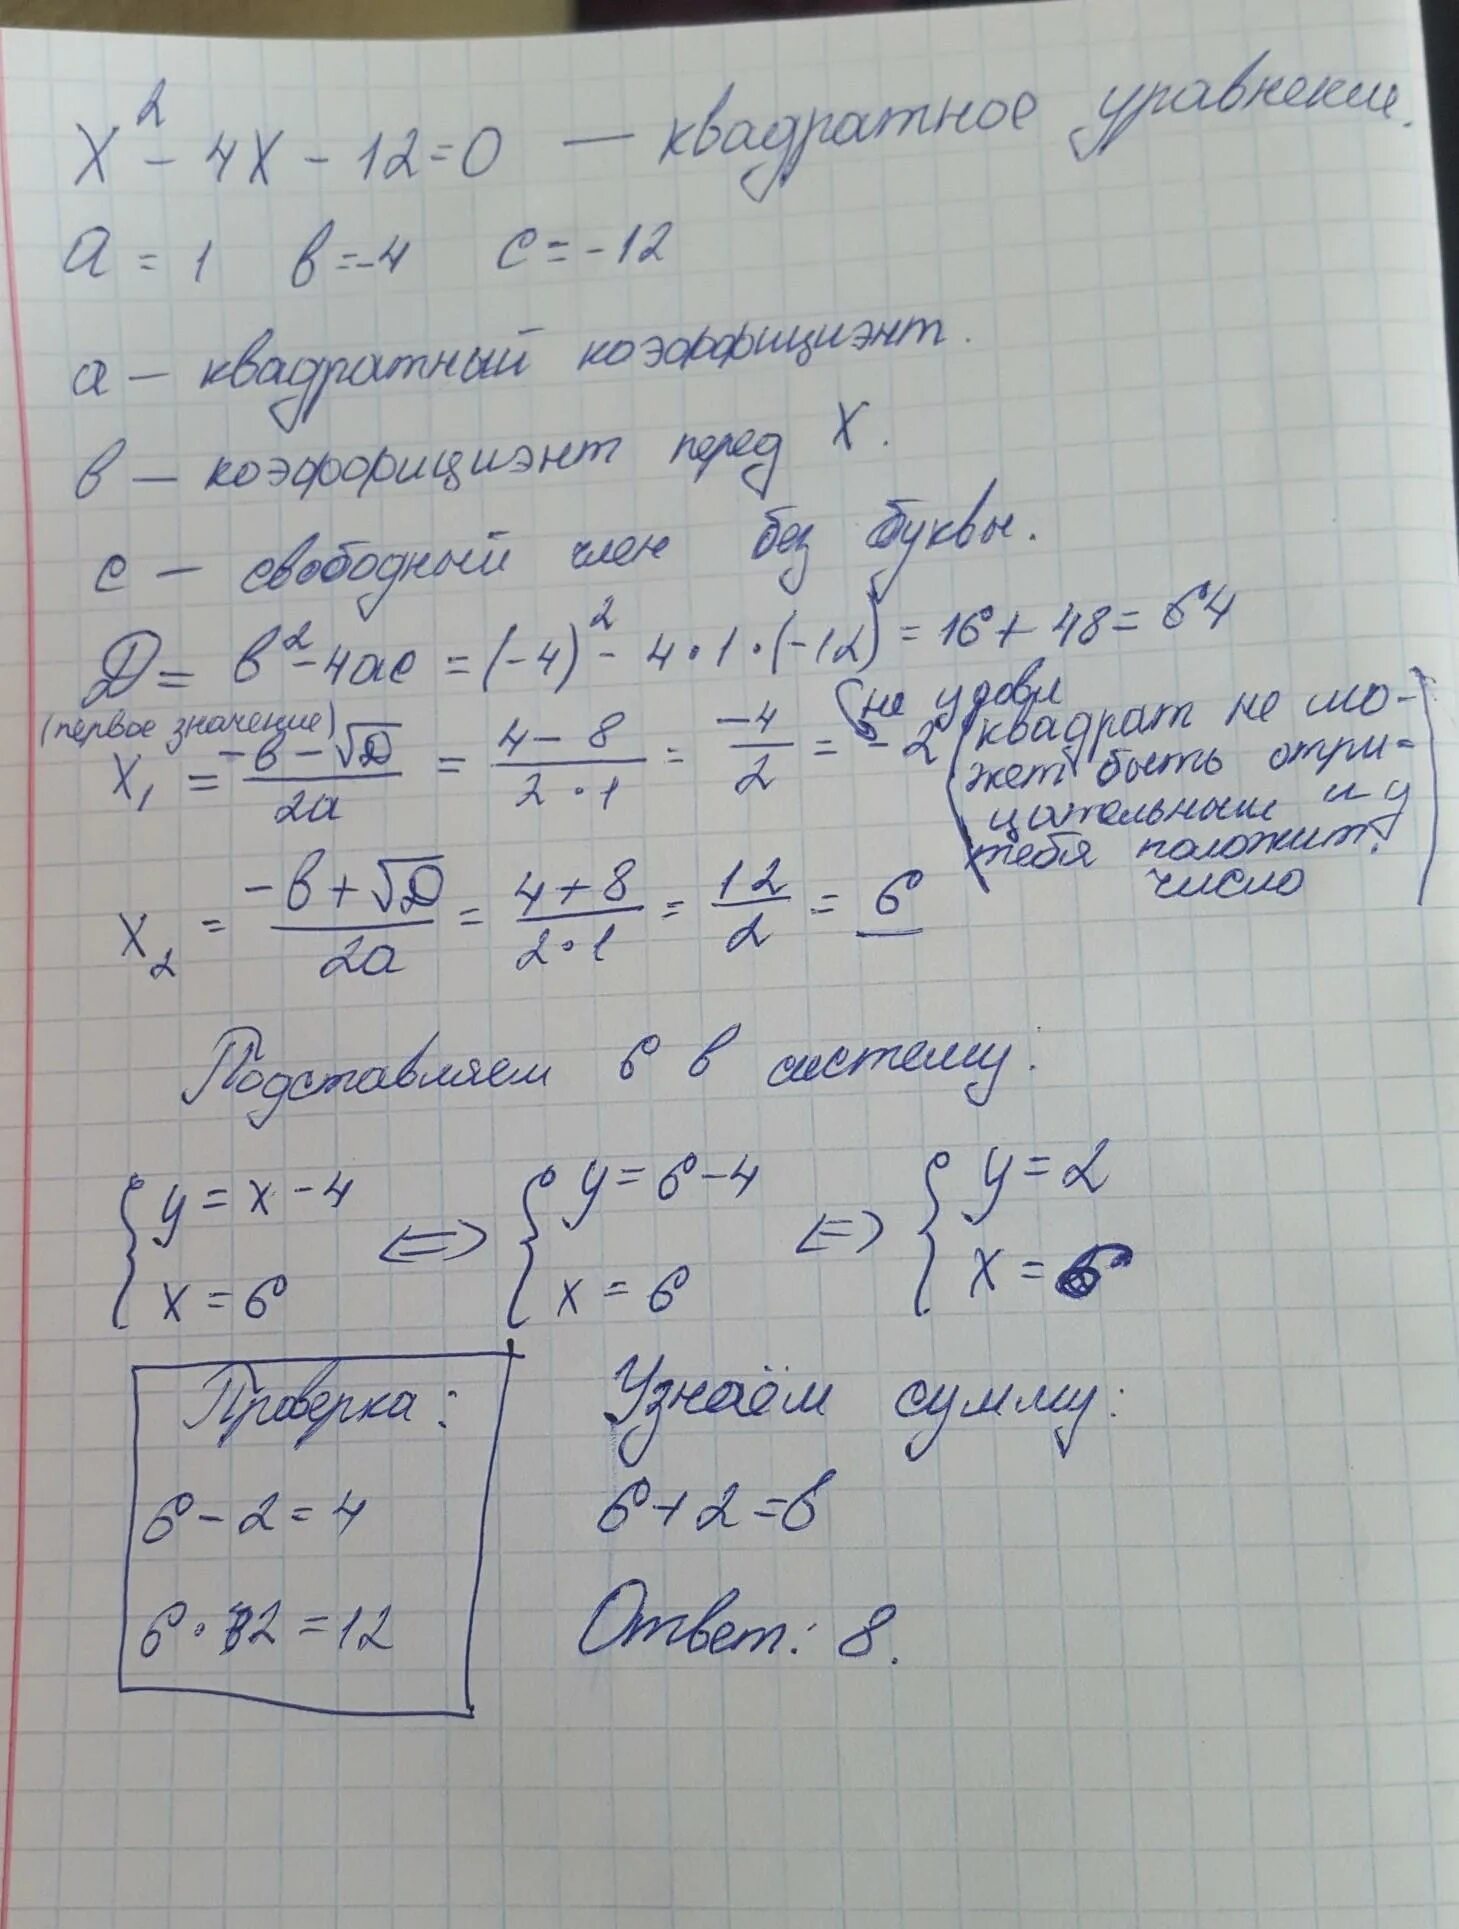 x² - 4x - 12 = 0 — квадратное уравнение.
a = 1 в = -4 c = -12
а — квадратный коэффициэнт.
в — коэффициэнт перед X.
с — свободный член без буквы.
D = в² - 4ac = (-4)² - 4·1·(-12) = 16 + 48 = 64
(первое значение)
x₁ = (-в - √D)/2a = (4 - 8)/(2·1) = -4/2 = -2 не удовл
(квадрат не мо-
жет быть отри-
цательным и у
тебя положит.
число)
x₂ = (-в + √D)/2a = (4 + 8)/(2·1) = 12/2 = 6
Подставляем 6 в систему:
{ y = x - 4 <=> { y = 6 - 4 <=> { y = 2
x = 6 x = 6 x = 6
Проверка:
6 - 2 = 4
6 · 2 = 12
Узнаём сумму:
6 + 2 = 8
Ответ: 8.